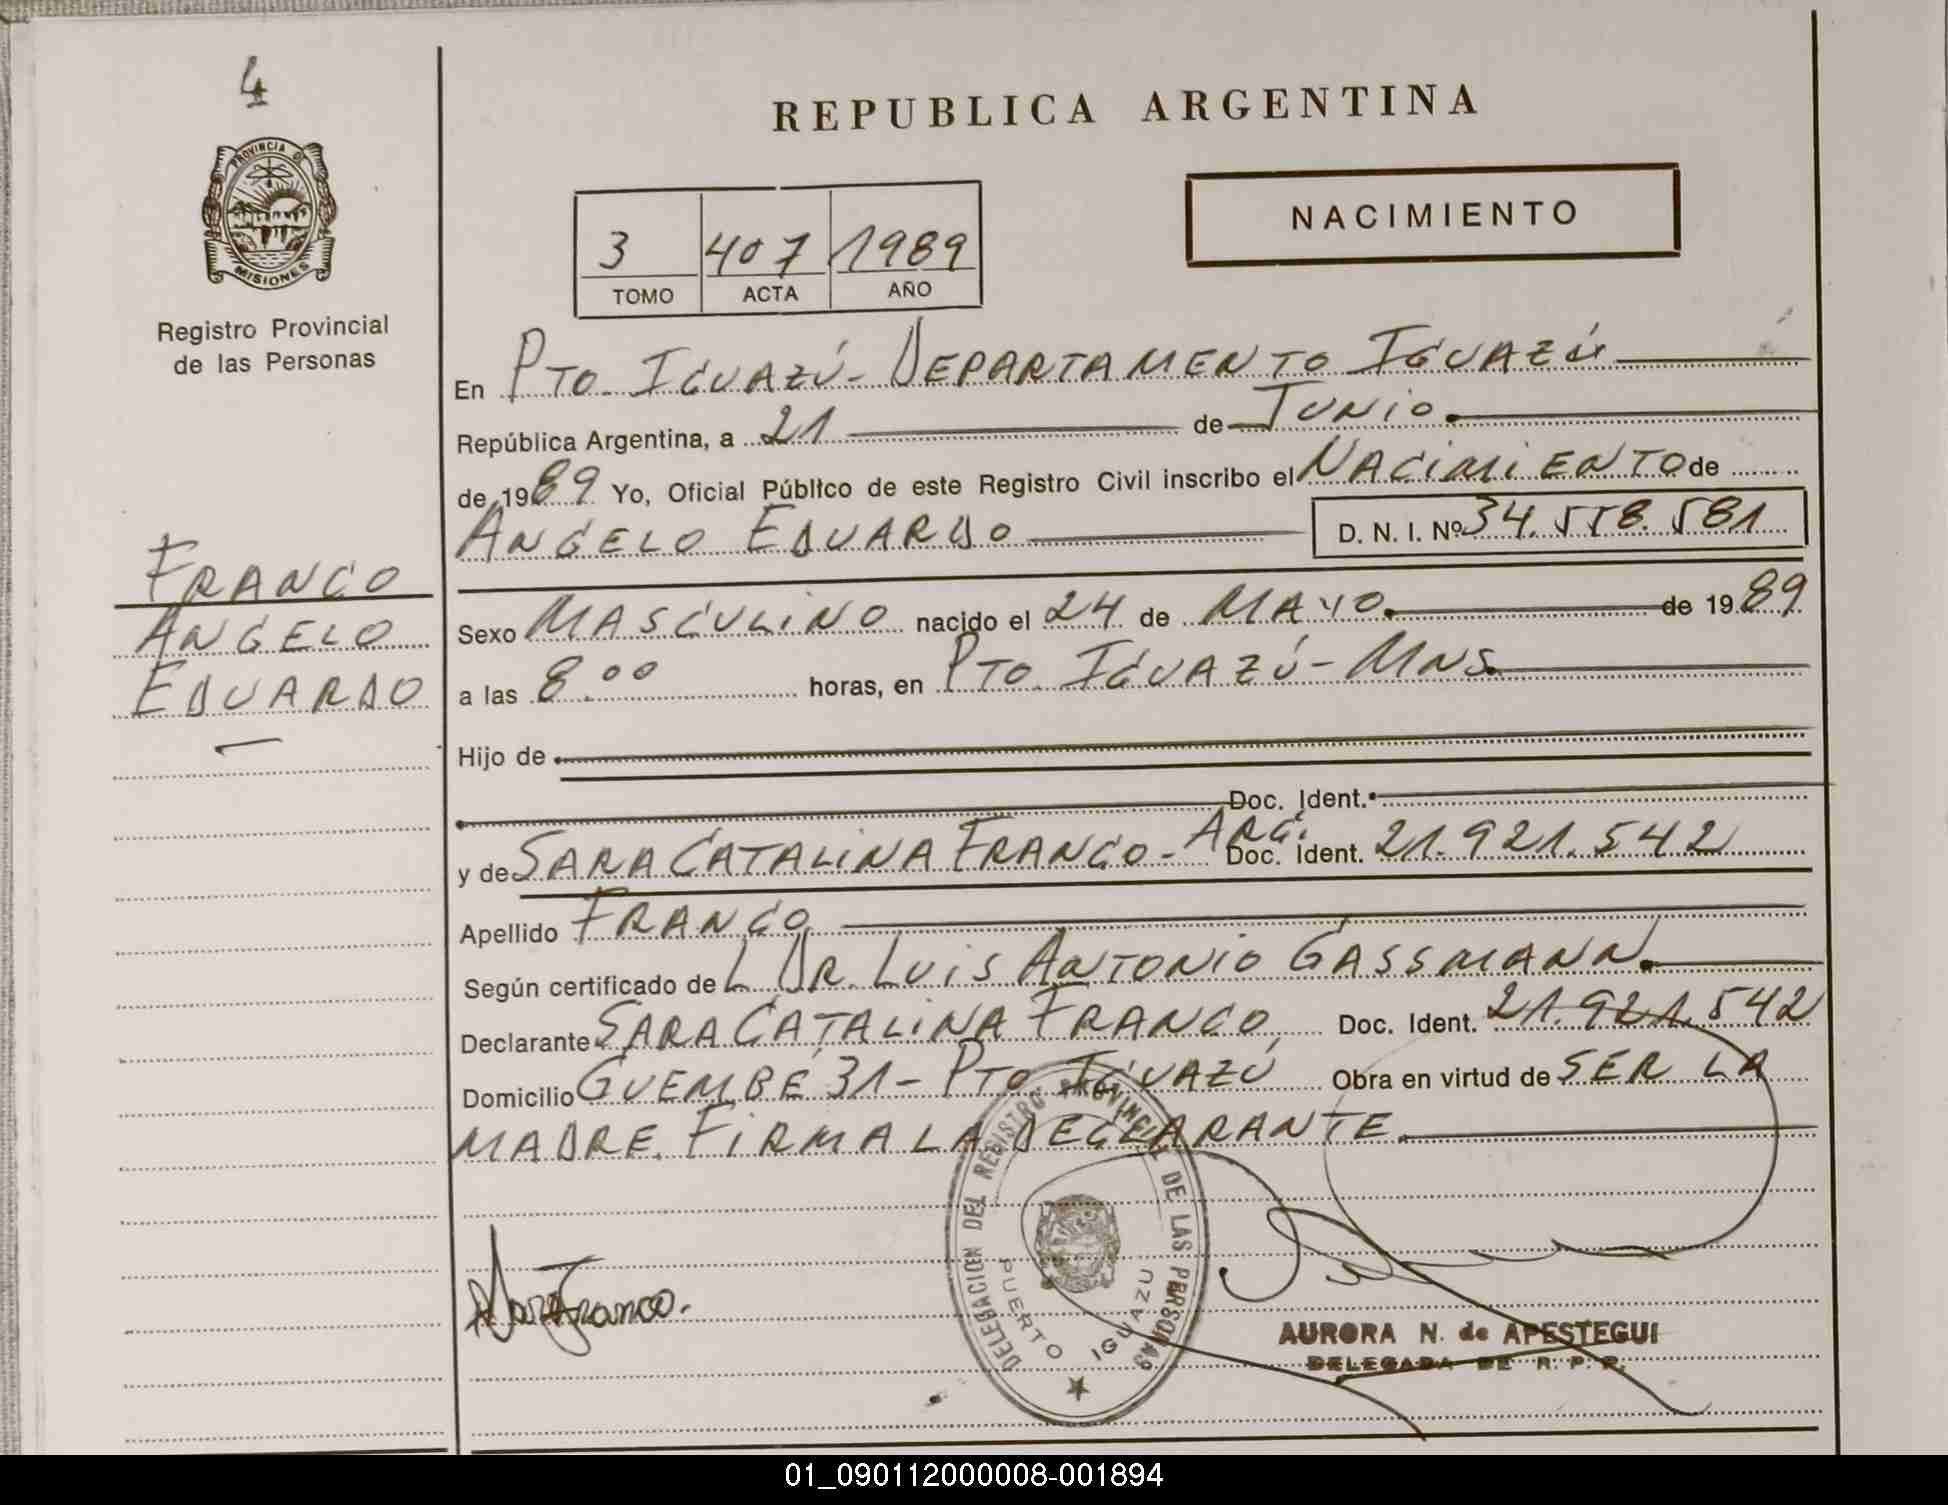 4
REPUBLICA ARGENTINA
PROVINCIA DE
MISIONES
Registro Provincial
de las Personas
NACIMIENTO
3 407 1989
TOMO ACTA AÑO
En PTO. IGUAZÚ - DEPARTAMENTO IGUAZÚ
República Argentina, a 21 de JUNIO.
de 1989 Yo, Oficial Público de este Registro Civil inscribo el NACIMIENTO de
ANGELO EDUARDO D. N. I. Nº 34.558.581
FRANCO
ANGELO
EDUARDO
Sexo MASCULINO nacido el 24 de MAYO. de 1989
a las 8.00 horas, en PTO. IGUAZÚ - MNS.
Hijo de
Doc. Ident.
y de SARA CATALINA FRANCO - ARG. Doc. Ident. 21.921.542
Apellido FRANCO
Según certificado de L DR. LUIS ANTONIO GASSMANN.
Declarante SARA CATALINA FRANCO Doc. Ident. 21.921.542
Domicilio GUEMBÉ 31 - PTO. IGUAZÚ Obra en virtud de SER LA
MADRE. FIRMA LA DECLARANTE.
DELEGACION DEL REGISTRO PROVINCIAL DE LAS PERSONAS
PUERTO IGUAZU
Sara Franco.
AURORA N. de APESTEGUI
DELEGADA DE R. P. P.
01_090112000008-001894